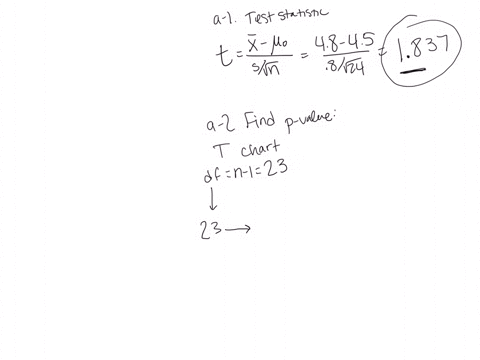 a-1. Test statistic
t = x̄ - μ₀ / s/√n = 4.8 - 4.5 / .8/√24 = 1.837
a-2 Find p-value:
T chart
df = n-1 = 23
↓
23 →